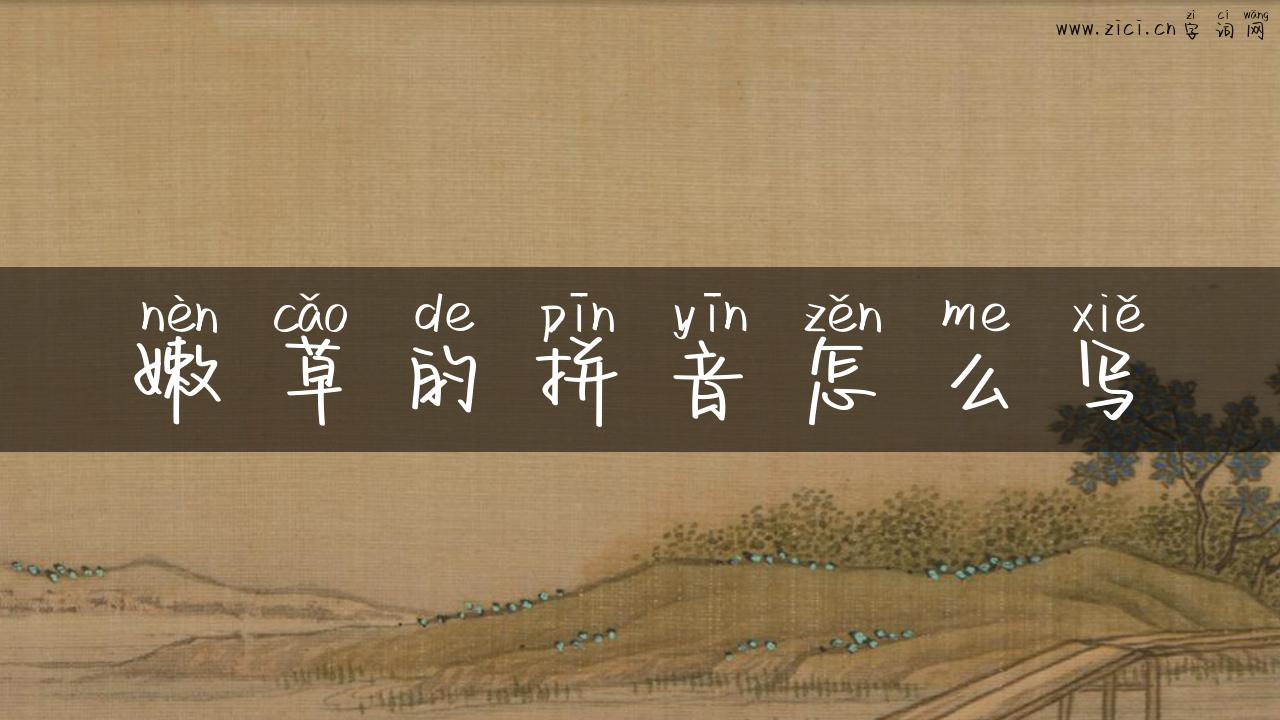 zì cí wǎng
www.zici.cn字词网
nèn cǎo de pīn yīn zěn me xiě
嫩草的拼音怎么写